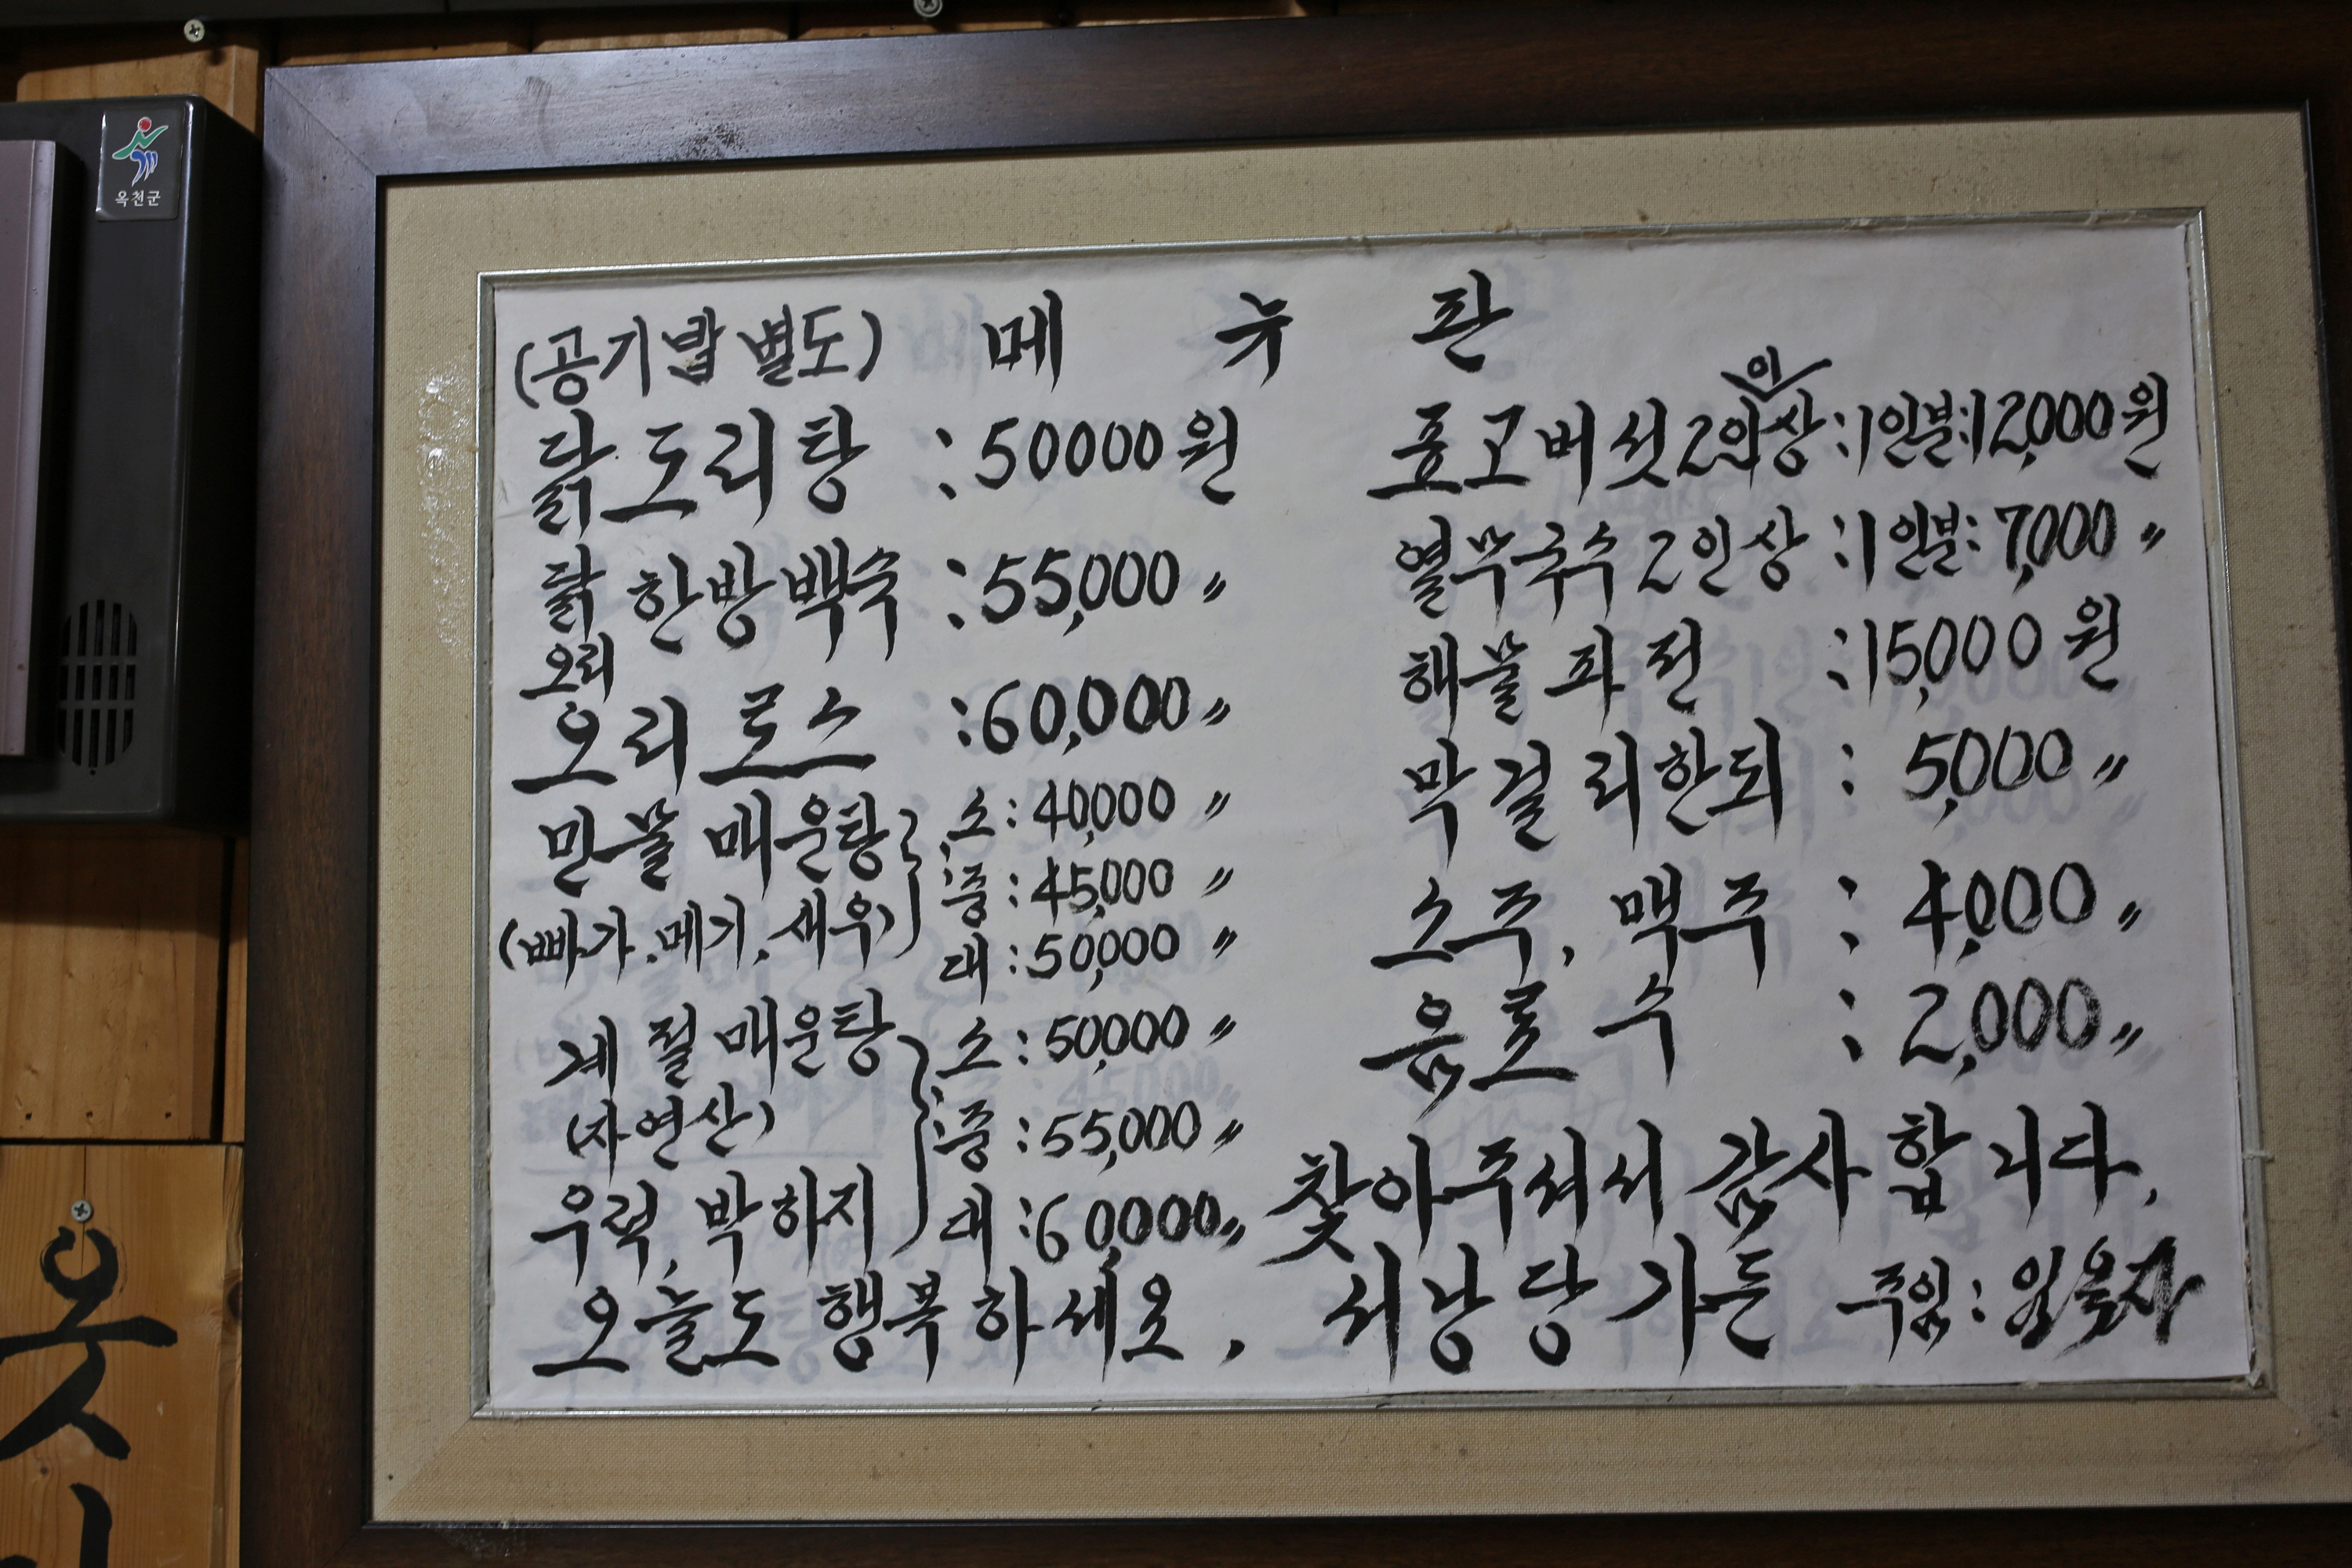 옥천군
(공기밥 별도) 메 뉴 판
닭도리탕 : 50000원
닭 한방백숙 : 55,000〃
오리
오리 로스 : 60,000〃
민물 매운탕 소 : 40,000〃
중 : 45,000〃
(빠가, 메기, 새우) 대 : 50,000〃
계절 매운탕 소 : 50,000〃
(자연산) 중 : 55,000〃
우럭, 박하지 대 : 60,000〃
오늘도 행복하세요,
표고버섯 2인이상 : 1인분 : 12,000원
열무국수 2인상 : 1인분 : 7,000〃
해물 파전 : 15,000원
막걸리한되 : 5,000〃
소주, 맥주 : 4,000〃
음료수 : 2,000〃
찾아주셔서 감사합니다,
서낭당 가든 주임 : 임옥자
옷